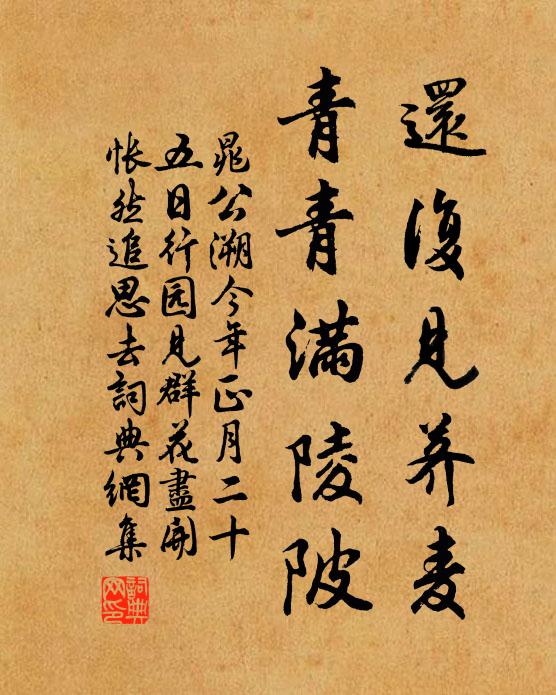 還復見荞麦
青青満陵陂
晁公溯今年正月二十
五日行园見群花盡開
怅然追思去詞典網集
詞典
网印